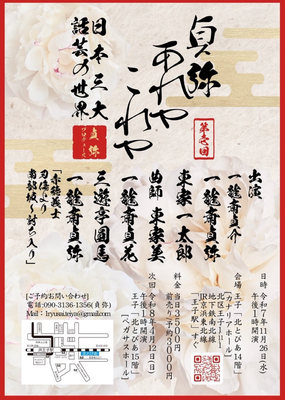 貞弥
あれや
これや
第壱回
日本三大
話芸の世界
貞弥
出演
一龍斎貞介
一龍斎貞弥
東家一太郎
曲師 東家美
三遊亭圓馬
一龍斎貞花
一龍斎貞弥
「赤穂義士
刃傷より
南部坂〜討ち入り」
日時 令和7年11月26日(水)
午後1時開演
会場 王子「北とぴあ14階」
(カナリアホール)
北区王子1-11-1
地下鉄南北線
JR京浜東北線
「王子駅」すぐ
料金 当日3500円
前売り・予約3000円
次回 令和8年4月12日(日)
午後1時開演
王子「北とぴあ15階」
(ペガサスホール)
[ご予約お問い合わせ]
電話:090-3136-1356(貞弥)
Mail : Iryusai.teiya@gmail.com